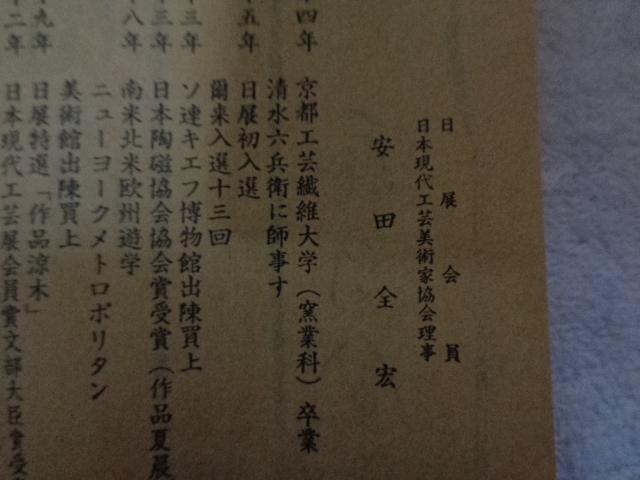 日展会員
日本現代工芸美術家協会理事
安田全宏
十四年 京都工芸繊維大学（窯業科）卒業
清水六兵衛に師事す
十五年 日展初入選
爾来入選十三回
十三年 ソ連キエフ博物館出陳買上
十三年 日本陶磁協会協会賞受賞（作品夏展
十八年 南米北米欧州遊学
ニューヨークメトロポリタン
美術館出陳買上
十九年 日展特選「作品涼木」
十二年 日本現代工芸展会員賞文部大臣賞受